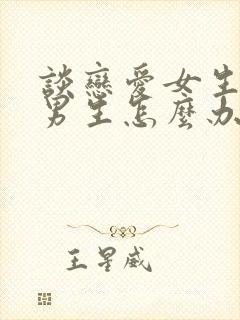 談戀愛女生
男生怎麼办
王星威